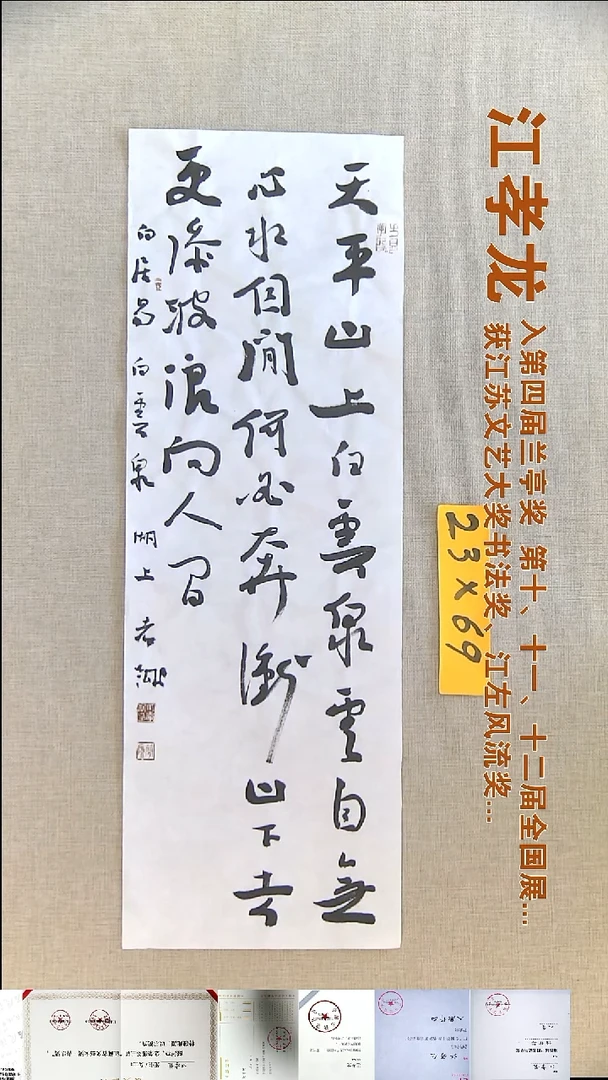 江孝龙
入第四届兰亭奖 第十、十一、十二届全国展...
获江苏文艺大奖书法奖、江左风流奖...
23×69
天平山上白雲泉雲自無
心水自閒何必奔衝山下去
更添波浪向人间
白居易白雲泉 湖上老